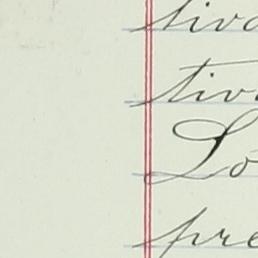 tiva
tiv
Lo
pre